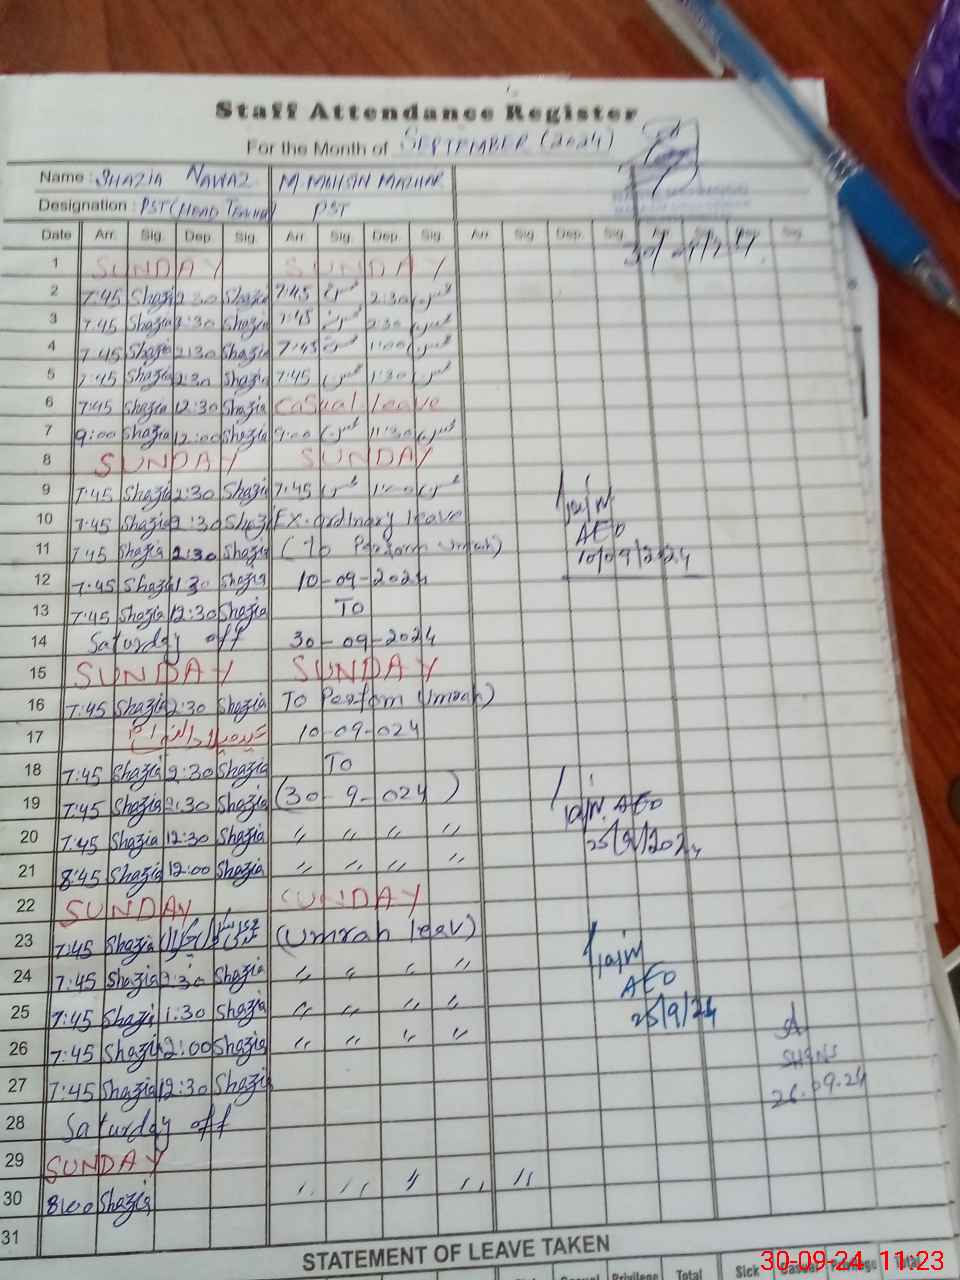 Staff Attendance Register
For the Month of SEPTEMBER (2024)
Name : SHAZIA NAWAZ M. MOHSIN MAZHAR
Designation : PST (HEAD Teacher) PST
Date Arr. Sig. Dep. Sig. Arr. Sig. Dep. Sig. Arr. Sig. Dep. Sig. Sig.
1 SUNDAY SUNDAY
2 7:45 Shazia 2:30 Shazia 7:45 2:30
3 7:45 Shazia 2:30 Shazia 7:45 2:30
4 7:45 Shazia 2:30 Shazia 7:45 1:00
5 7:45 Shazia 2:30 Shazia 7:45 1:30
6 7:45 Shazia 12:30 Shazia Casual leave
7 9:00 Shazia 12:00 Shazia 9:00 11:30
8 SUNDAY SUNDAY
9 7:45 Shazia 2:30 Shazia 7:45
10 7:45 Shazia 2:30 Shazia Ex-ordinary leave
11 7:45 Shazia 2:30 Shazia (To Perform Umrah)
12 7:45 Shazia 1:30 Shazia 10-09-2024
13 7:45 Shazia 12:30 Shazia To
14 Saturday off 30-09-2024
15 SUNDAY SUNDAY
16 7:45 Shazia 2:30 Shazia To Perfom Umrah)
17 10-09-024
18 7:45 Shazia 2:30 Shazia To
19 7:45 Shazia 2:30 Shazia (30-9-024)
20 7:45 Shazia 12:30 Shazia " " " "
21 8:45 Shazia 12:00 Shazia " " " "
22 SUNDAY SUNDAY
23 7:45 Shazia (Umrah leav)
24 7:45 Shazia 2:30 Shazia " " " "
25 7:45 Shazia 1:30 Shazia " " " "
26 7:45 Shazia 2:00 Shazia " " " "
27 7:45 Shazia 12:30 Shazia
28 Saturday off
29 SUNDAY
30 8:00 Shazia " " " " "
31
AEO
10/09/2024
AEO
25/9/2024
AEO
25/9/24
26.09.24
STATEMENT OF LEAVE TAKEN
Sick Casual Privilege Total
30-09-24 11:23